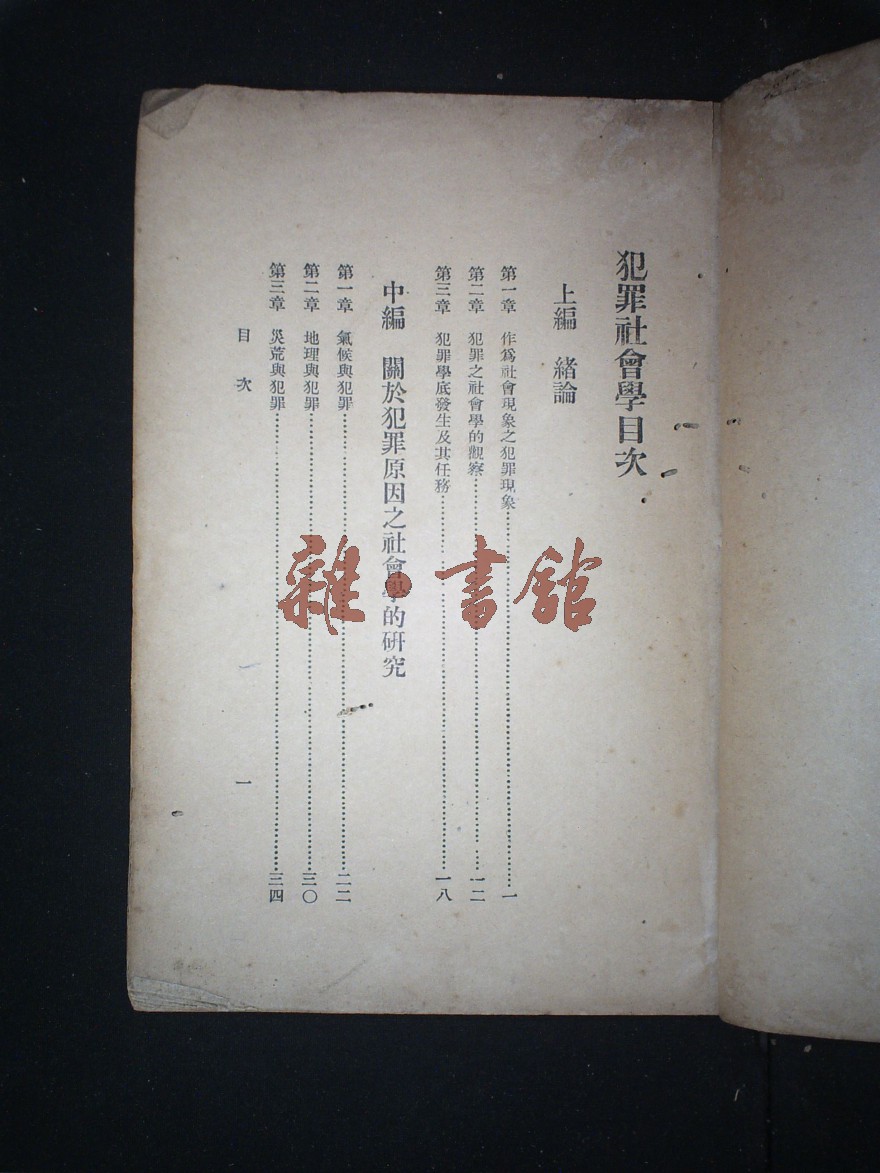 犯罪社會學目次
上編　緒論
第一章　作爲社會現象之犯罪現象……一
第二章　犯罪之社會學的觀察……一二
第三章　犯罪學底發生及其任務……一八
中編　關於犯罪原因之社會學的研究
第一章　氣候與犯罪……二二
第二章　地理與犯罪……三〇
第三章　災荒與犯罪……三四
目次　一
雜·書館